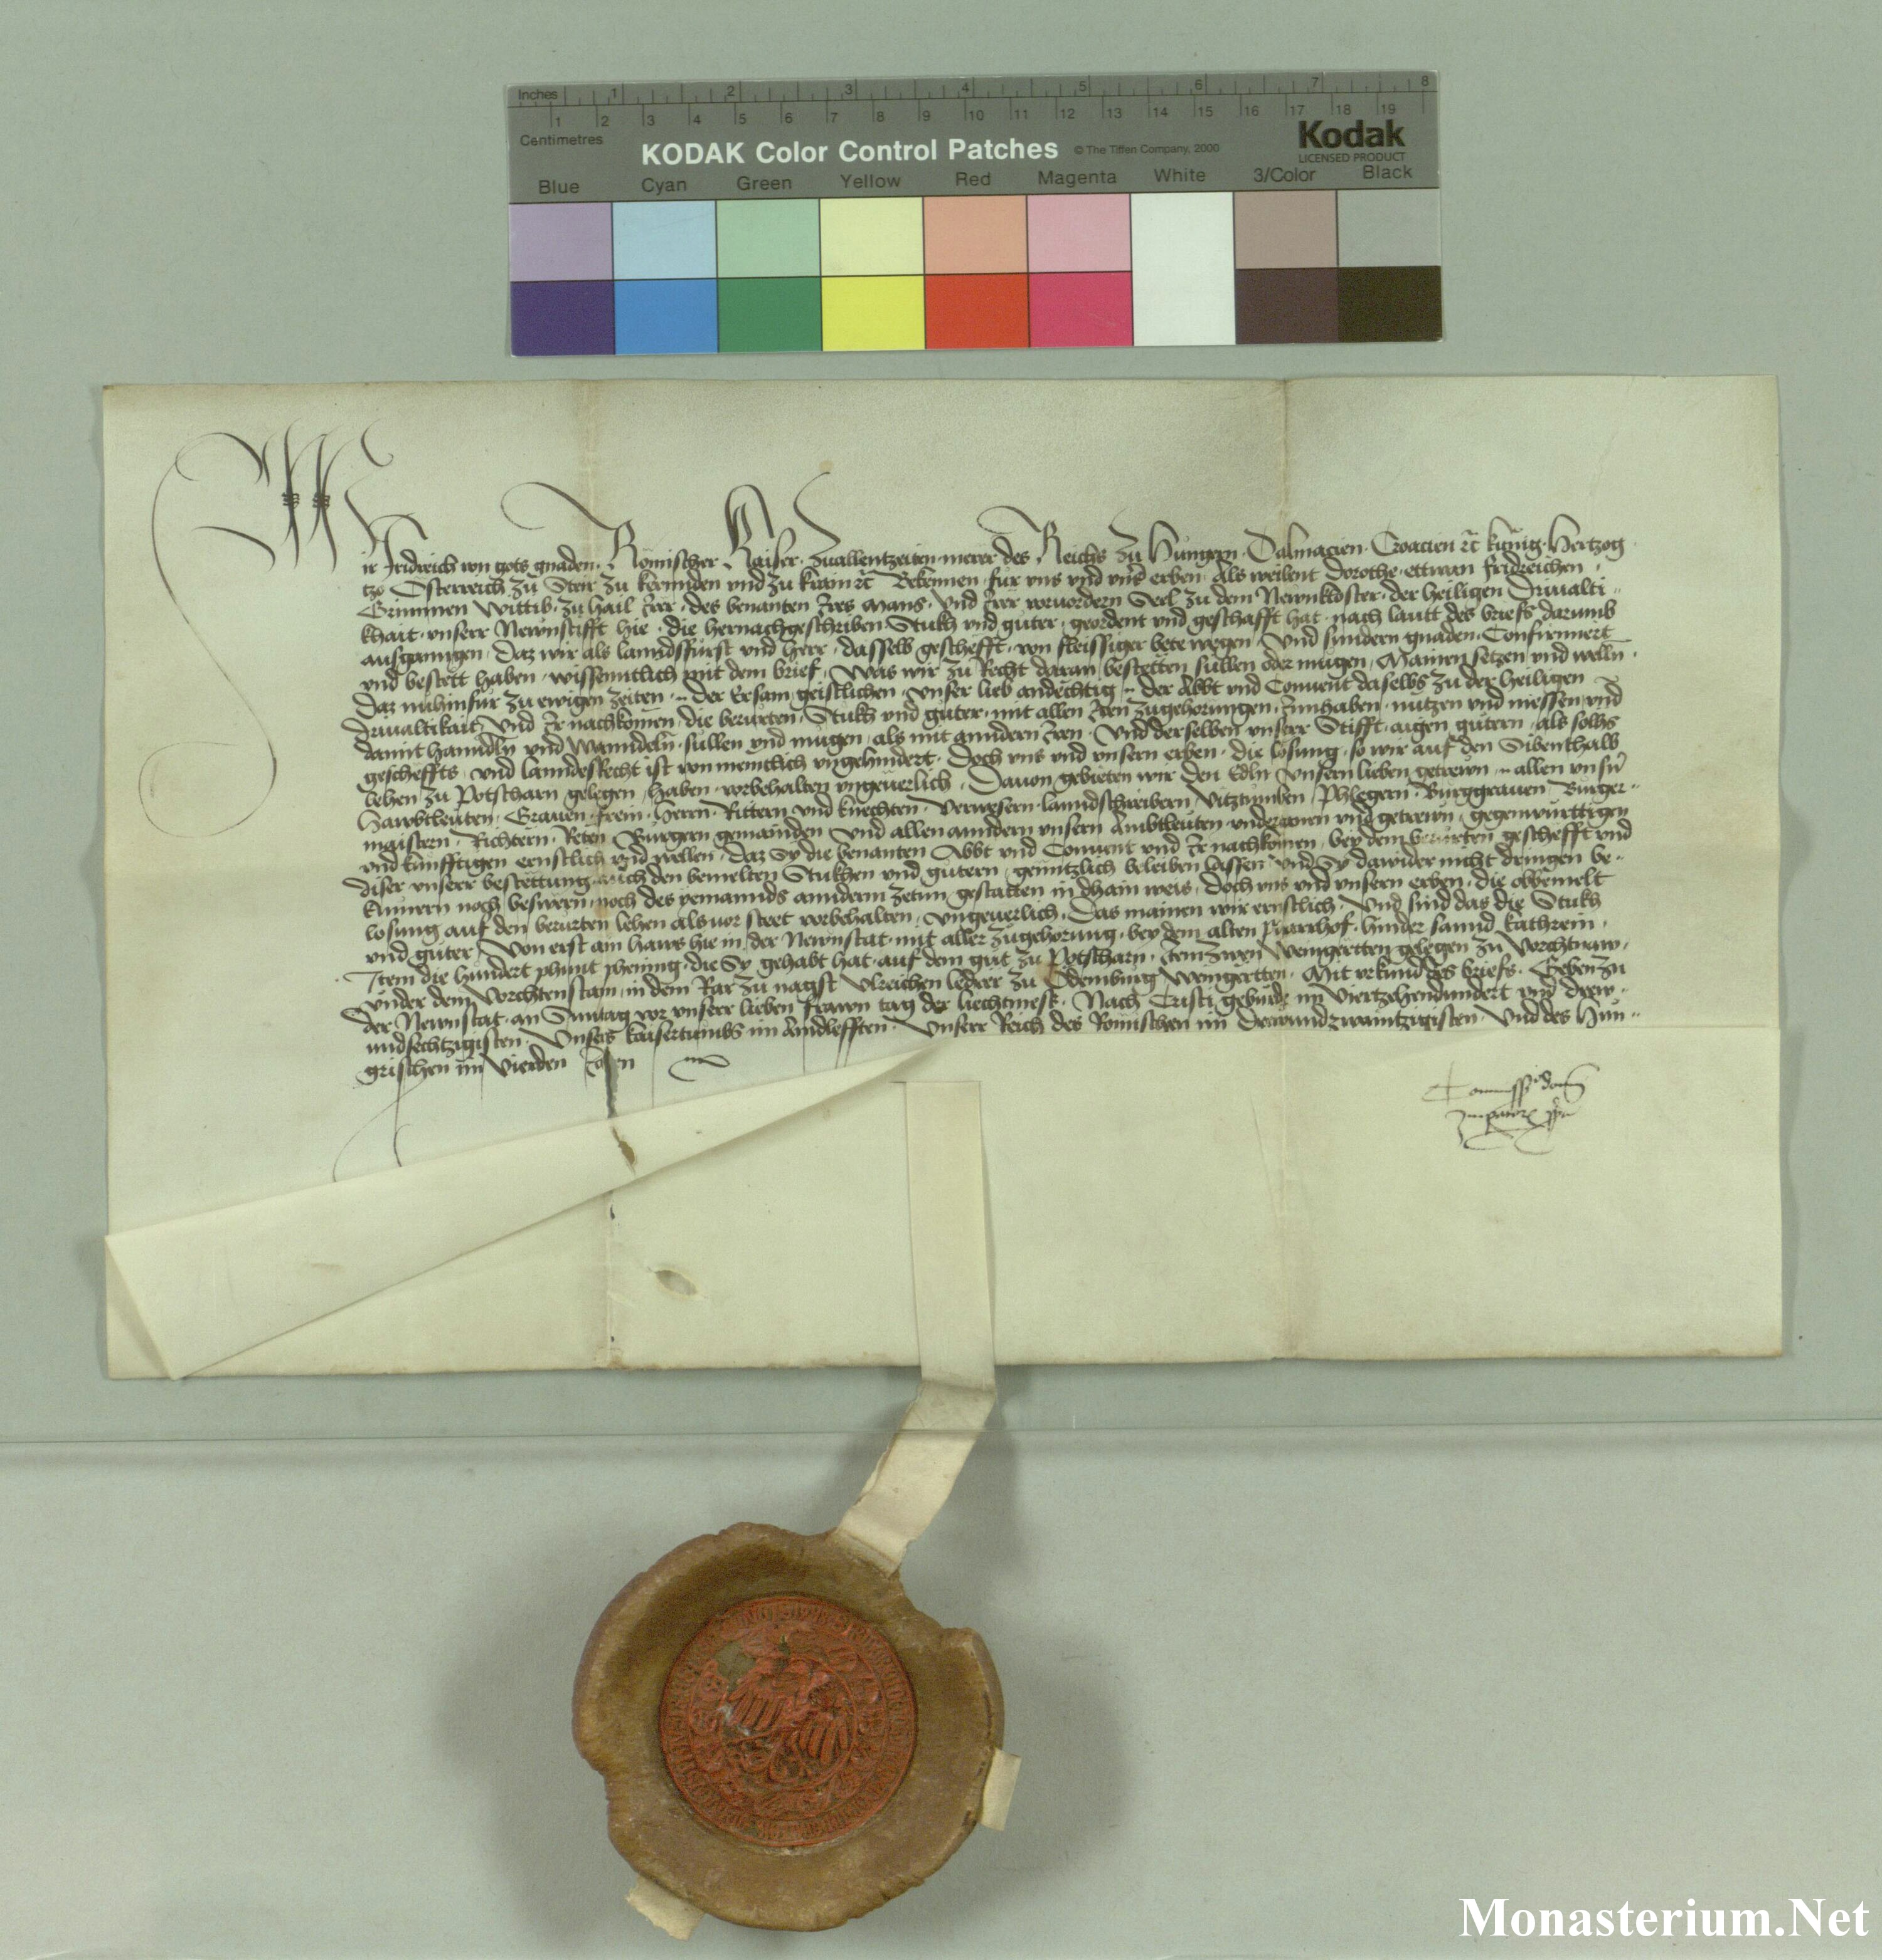 Inches 1 2 3 4 5 6 7 8
1 2 3 4 5 6 7 8 9 10 11 12 13 14 15 16 17 18 19
Centimetres
KODAK Color Control Patches © The Tiffen Company, 2000 Kodak
LICENSED PRODUCT
Blue Cyan Green Yellow Red Magenta White 3/Color Black
Wir Fridreich von gots gnaden Römischer Kaiser zuallentzeiten merer des Reichs zu Hungern Dalmacien Croacien etc kunig Hertzog
Osterreich zu Steir zu kernnden vnd zu krain etc Bekennen für vns vnd vnser erben Als weilent Dorothe ettwan fridreichen
Wittib zu hail irer des benanten ires mans vnd irer voruordern Seel zu dem Newnkloster der heiligen Driualti
khait vnserr Newnstifft hie die hernachgeschriben Stukh vnd guter geordent vnd geschafft hat nach lautt des briefs darumb
ausganngen Daz wir als lanndsfürst vnd herr dasselb geschefft von fleissiger bete wegen vnd sundern gnaden Confirmiert
vnd bestett haben wissenntlich mit dem brief Was wir zu Recht daran bestetten sullen oder mugen Mainen setzen vnd welln
Daz nuhinfür zu ewigen zeiten der Ersam geistlichen vnser lieb andechtig der Abbt vnd Conuent daselbs zu der heiligen
driualtikait vnd ir nachkomen die berurten Stukh vnd guter mit allen iren zugehorungen Innhaben nutzen vnd niessen vnd
damit hanndln vnd wanndeln sullen vnd mugen als mit anndern iren vnd derselben vnserr Stifft aigen gutern als solhs
gescheffts vnd lanndesRecht ist von menniclich vngehindert Doch vns vnd vnsern erben die losung so wir auf den Sibenthalb
lehen zu Potscharn gelegen haben vorbehalten vngeuerlich Dauon gebieten wir den Edln vnsern lieben getrewn allen vnsern
hawbtleuten Grauen frein herrn Rittern vnd knechten Verwesern lanndschreibern Vitztumben Phlegern Burggrauen Burger
maistern Richtern Reten Burgern gemainden vnd allen anndern vnsern Ambtleuten vndertanen vnd getrewn gegenwurttigen
vnd kunfftigen ernstlich vnd wellen Daz Sy die benanten Abbt vnd Conuent vnd ir nachkomen bey dem berurten geschefft vnd
diser vnserr bestettung auch den bemelten Stukhen vnd gutern genntzlich beleiben lassen vnd Sy dawider nicht dringen be
kumern noch beswern noch des yemannds anndern zetun gestatten in dhain weis Doch vns vnd vnsern erben die obbemelt
losung auf den berurten lehen als uor steet vorbehalten vngeuerlich Das mainen wir ernstlich Vnd sind das die Stukh
vnd guter Von erst ain haws hie in der Newnstat mit aller zugehorung bey dem alten Pharrhof hinder sannd kathrein
Item die hundert phunt phening die Sy gehabt hat auf dem gut zu Potscharn Item zwen weingertten gelegen zu
vnder dem Vorchtenstain in dem Rar zu nagst Vlreichen ledrer zu Odemburg weingertten Mit vrkund des briefs Geben zu
der Newnstat an Sunntag vor vnserr lieben frawn tag der liechtmess Nach Cristi geburde im Viertzehenhundert vnd drew
undsechtzigisten Vnsers kaisertumbs im Aindlefften Vnserr Reich des Römischen im Drewundzwaintzigisten vnd des Hun
grischen im Vierden Jaren
Commissio domini
Imperatoris
Monasterium.Net